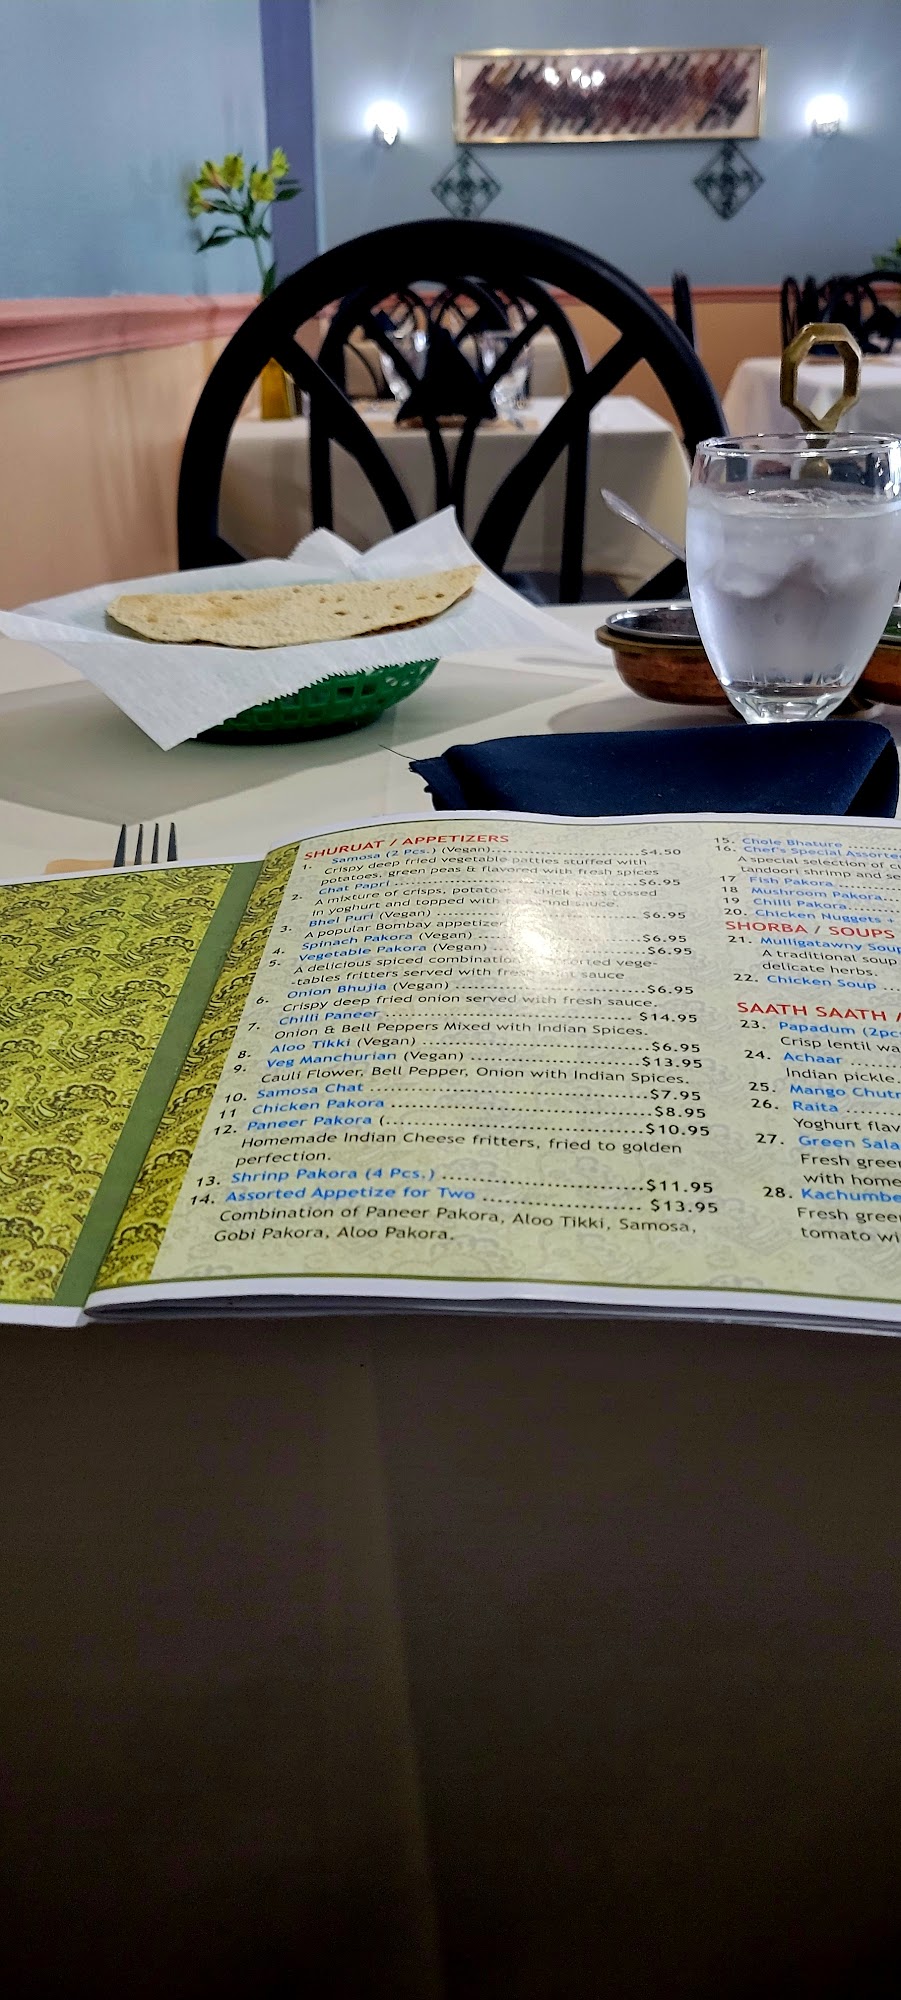 SHURUAT / APPETIZERS
1. Samosa (2 Pcs.) (Vegan)....$4.50
Crispy deep fried vegetable patties stuffed with
potatoes, green peas & flavored with fresh spices
2. Chat Papri ....$6.95
A mixture of crisps, potatoes chick peas tossed
in yoghurt and topped with and sauce.
3. Bhel Puri (Vegan) ....$6.95
A popular Bombay appetizer
4. Spinach Pakora (Vegan) ....$6.95
5. Vegetable Pakora (Vegan) ....$6.95
A delicious spiced combination assorted vege-
-tables fritters served with fresh mint sauce
6. Onion Bhujia (Vegan) ....$6.95
Crispy deep fried onion served with fresh sauce.
7. Chilli Paneer ....$14.95
Onion & Bell Peppers Mixed with Indian Spices.
8. Aloo Tikki (Vegan) ....$6.95
9. Veg Manchurian (Vegan) ....$13.95
Cauli Flower, Bell Pepper, Onion with Indian Spices.
10. Samosa Chat ....$7.95
11 Chicken Pakora ....$8.95
12. Paneer Pakora (....$10.95
Homemade Indian Cheese fritters, fried to golden
perfection.
13. Shrinp Pakora (4 Pcs.) ....$11.95
14. Assorted Appetize for Two .... $13.95
Combination of Paneer Pakora, Aloo Tikki, Samosa,
Gobi Pakora, Aloo Pakora.
15. Chole Bhature ....
16. Chef's Special Assorte
A special selection of c
tandoori shrimp and se
17 Fish Pakora....
18 Mushroom Pakora...
19 Chilli Pakora....
20. Chicken Nuggets +
SHORBA / SOUPS
21. Mulligatawny Soup
A traditional soup
delicate herbs.
22. Chicken Soup ...
SAATH SAATH /
23. Papadum (2pc
Crisp lentil wa
24. Achaar ....
Indian pickle.
25. Mango Chut
26. Raita ....
Yoghurt flav
27. Green Sala
Fresh gree
with home
28. Kachumbe
Fresh gree
tomato wi